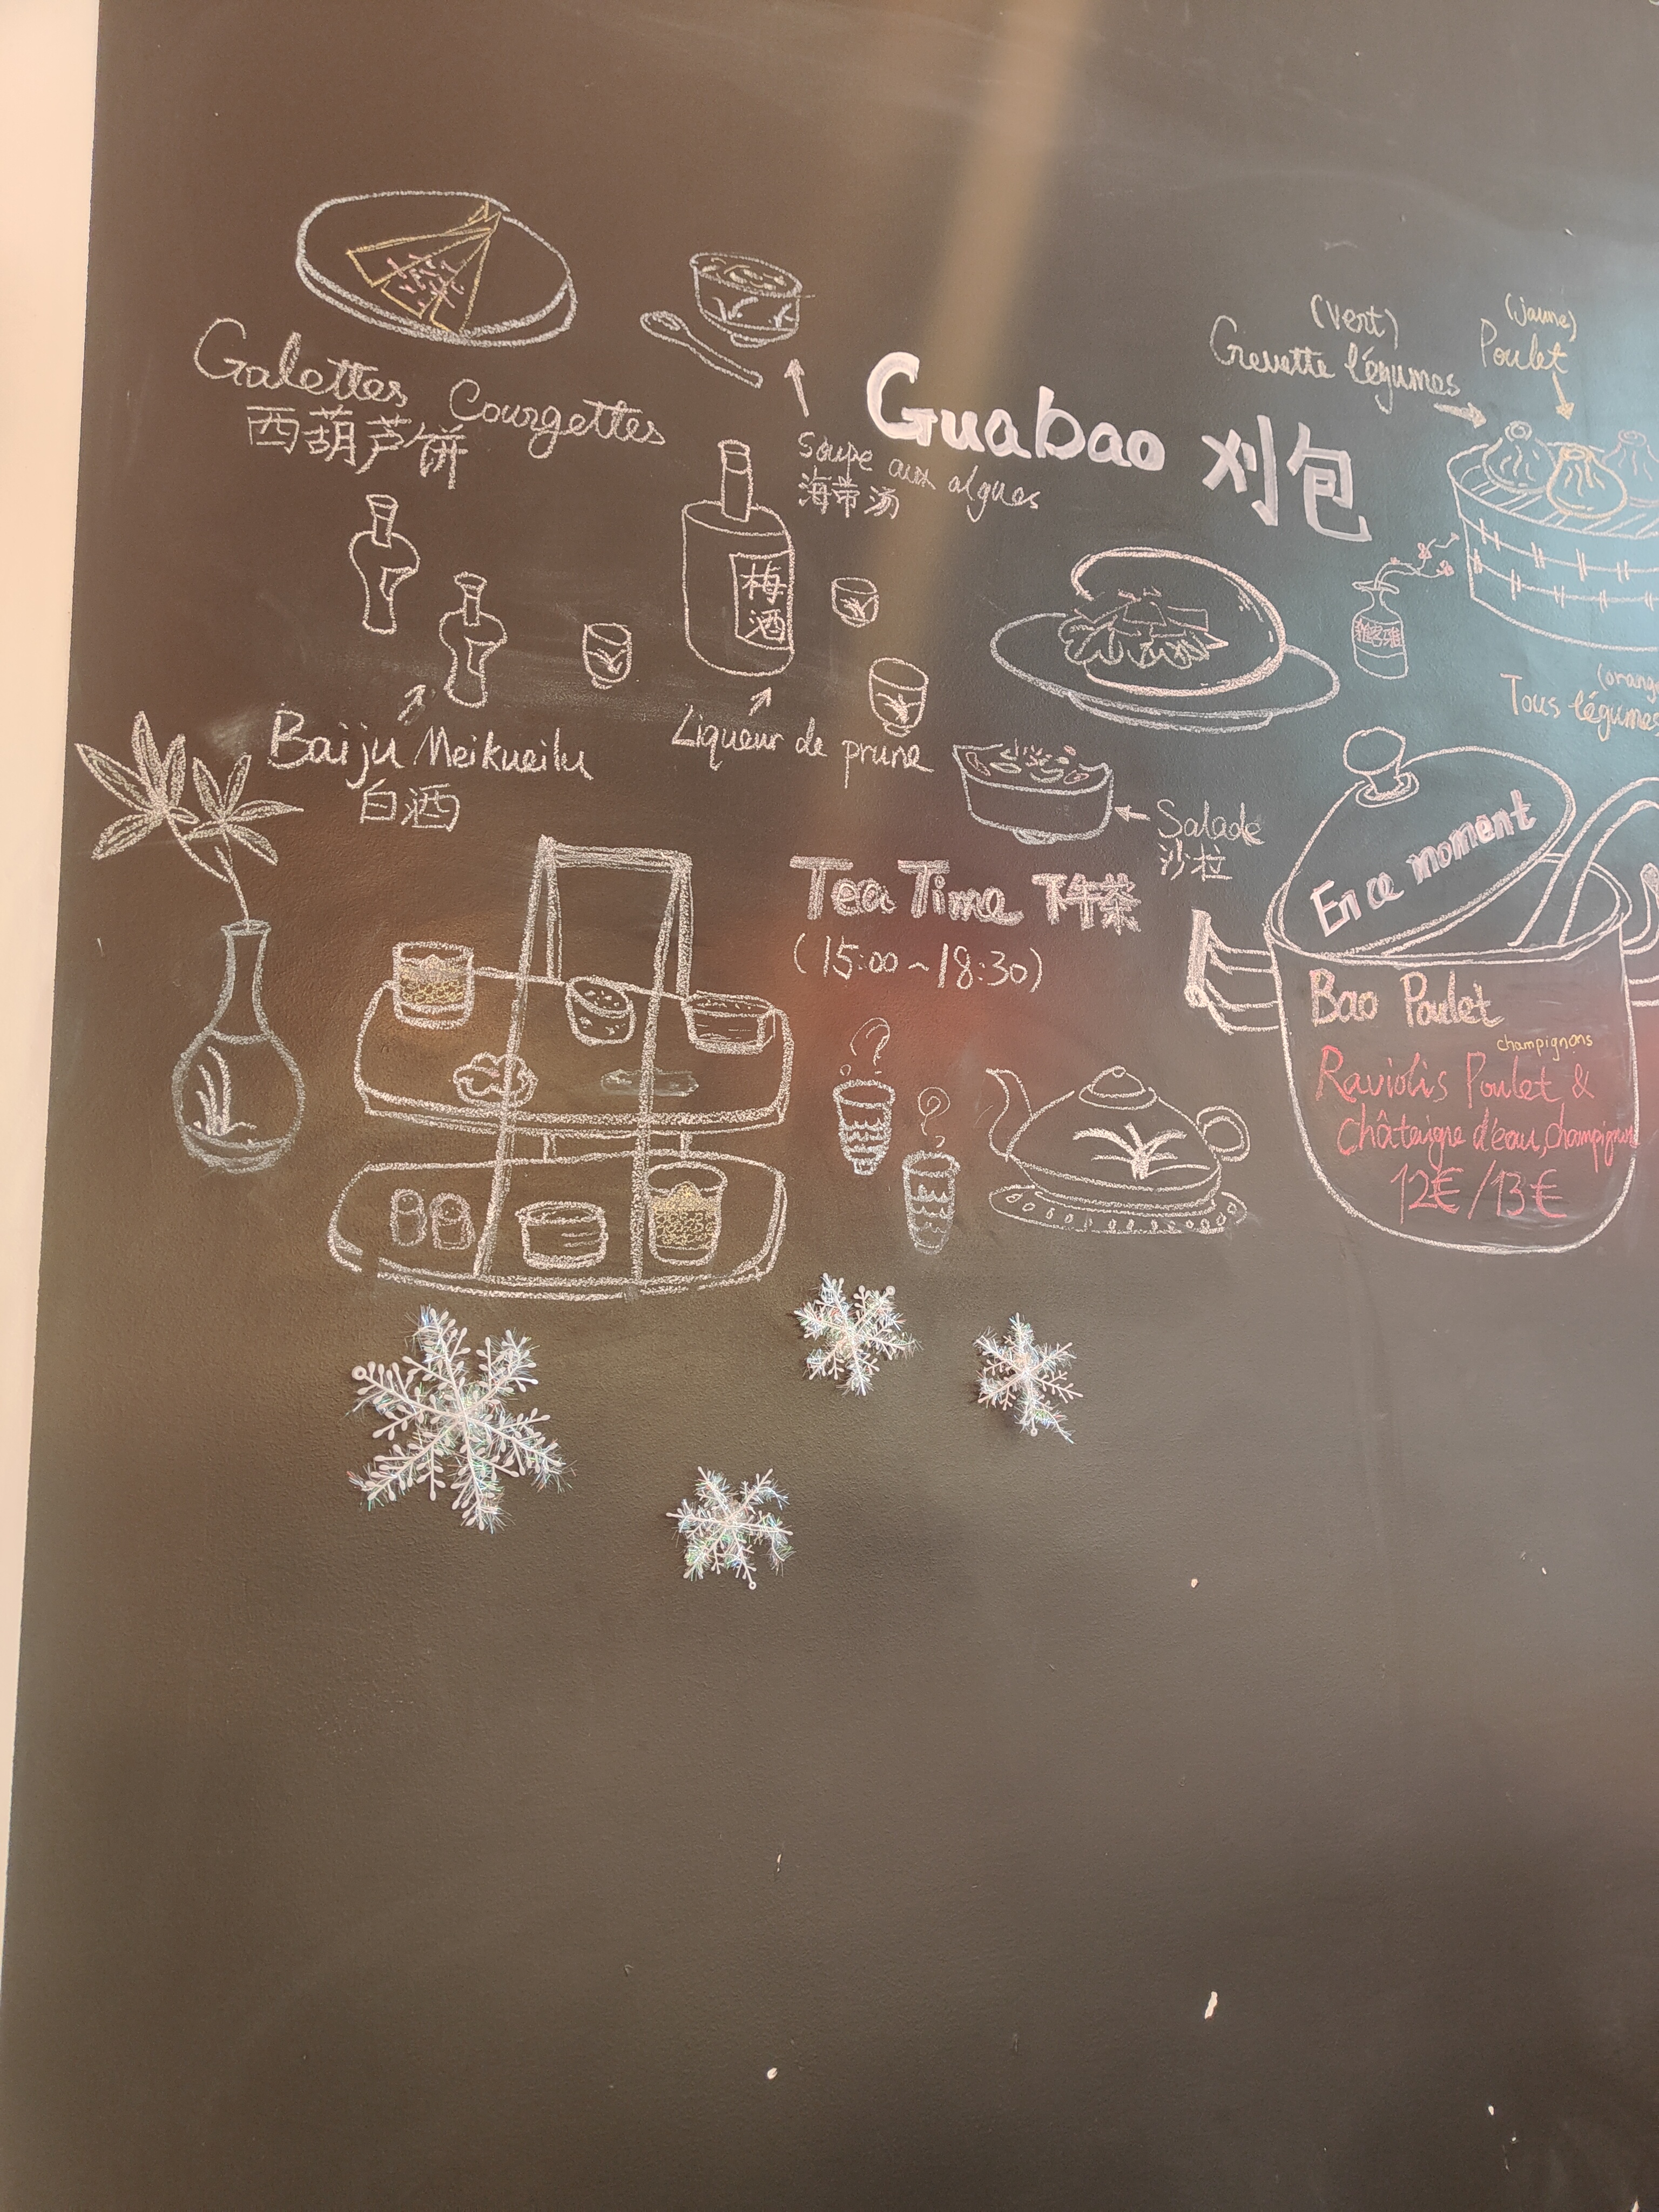 Galettes Courgettes
西葫芦饼
soupe aux algues
海带汤
Guabao 刈包
(vert)
Crevette légumes
(jaune)
Poulet
梅
酒
Baiju Meikueilu
白酒
Liqueur de prune
Tous légumes
Salade
沙拉
Tea Time 下午茶
(15:00~18:30)
En ce moment
Bao Poulet
champignons
Raviolis Poulet &
châtaigne d'eau,
12€/13€